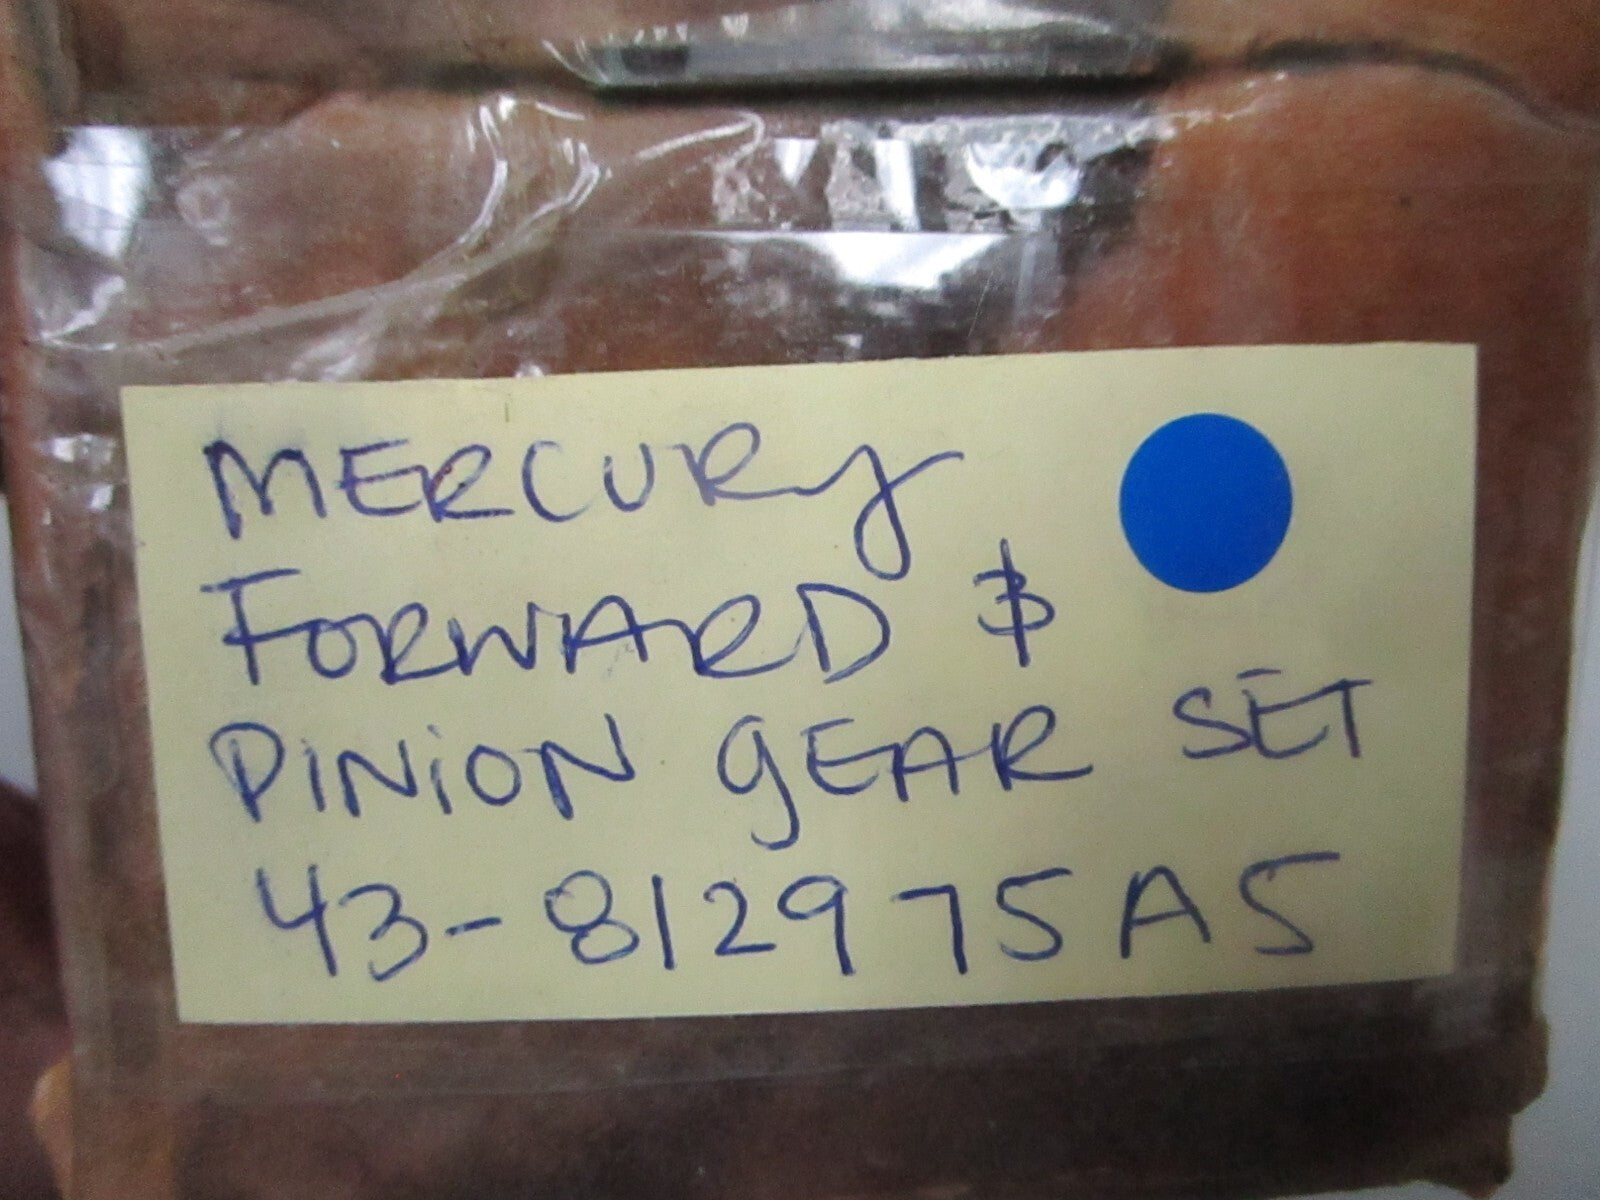 MERCURY
FORWARD &
PINION GEAR SET
43-812975A5